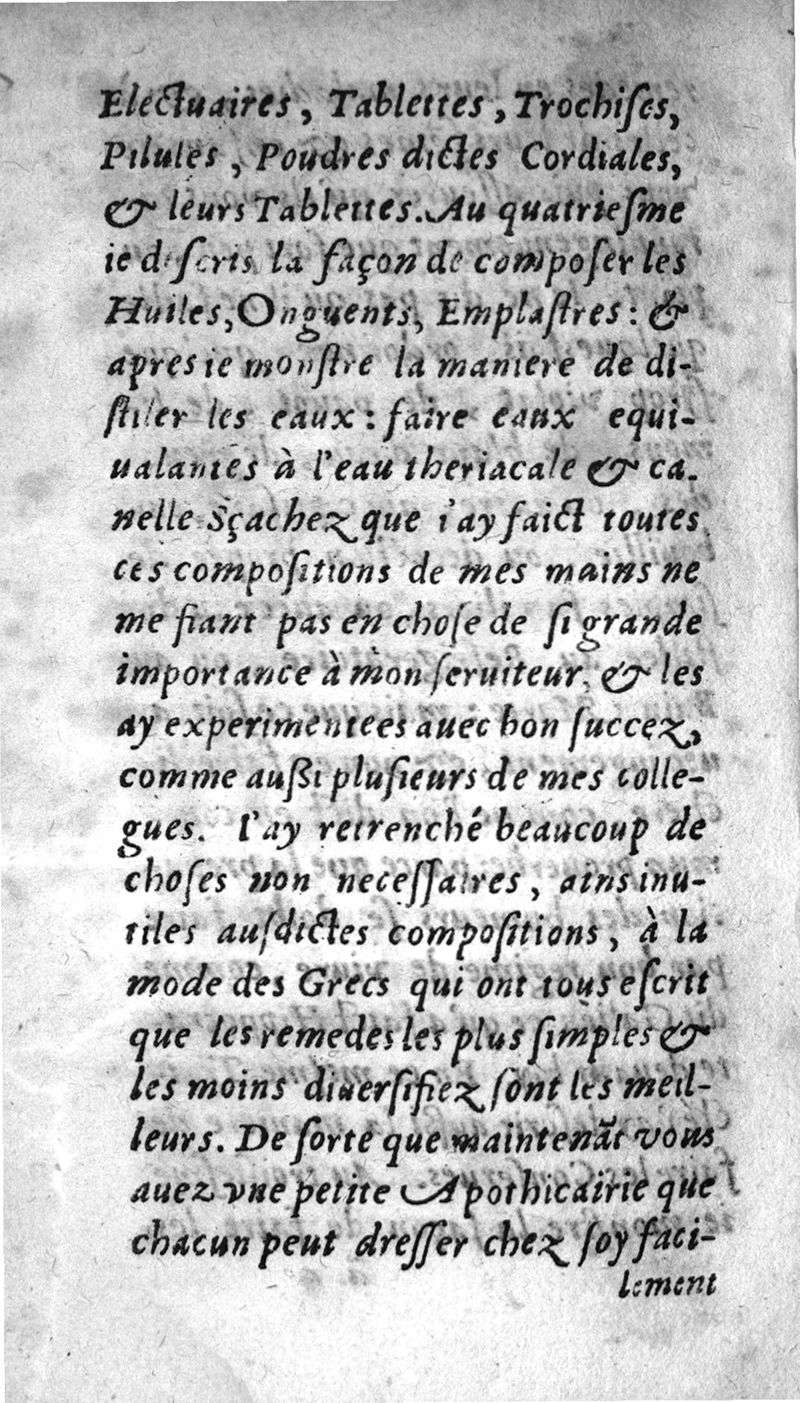 Electuaires, Tablettes, Trochiſes,
Pilules, Poudres dictes Cordiales,
& leurs Tablettes. Au quatrieſme
ie deſcris la façon de compoſer les
Huiles, Onguents, Emplaſtres: &
apres ie monſtre la maniere de di-
ſtiler les eaux: faire eaux equi-
ualantes à l'eau theriacale & ca-
nelle. Sçachez que i'ay faict toutes
ces compoſitions de mes mains ne
me fiant pas en choſe de ſi grande
importance à mon ſeruiteur, & les
ay experimentees auec bon ſuccez,
comme auſſi pluſieurs de mes colle-
gues. I'ay retrenché beaucoup de
choſes non neceſſaires, ains inu-
tiles auſdictes compoſitions, à la
mode des Grecs qui ont tous eſcrit
que les remedes les plus ſimples &
les moins diuerſifiez ſont les meil-
leurs. De ſorte que maintenãt vous
auez vne petite Apothicairie que
chacun peut dreſſer chez ſoy faci-
lement